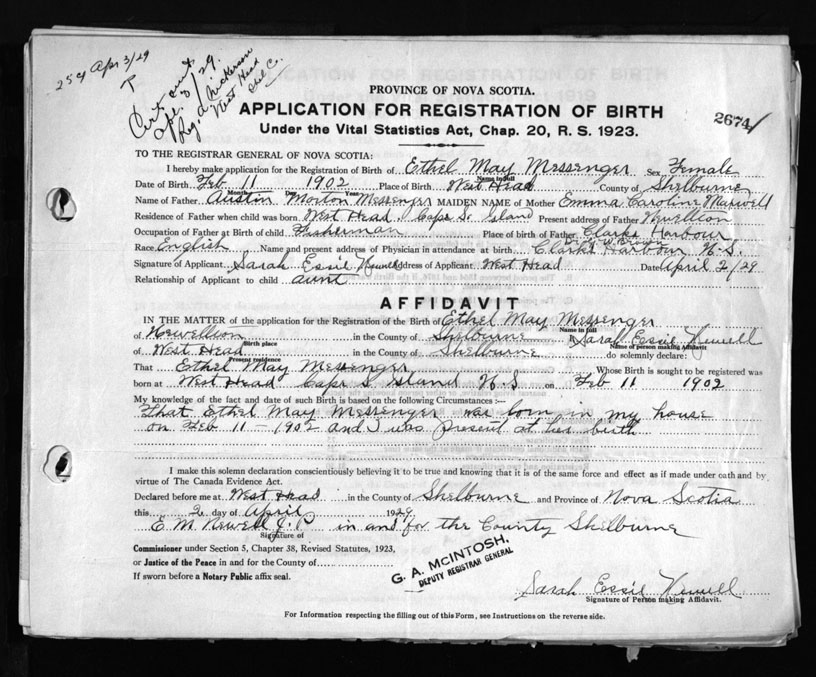 25¢ Apr 3/29
Cert. out
Apr. 3/29.
Reg'd Nickerson
West Head
Shel C.
PROVINCE OF NOVA SCOTIA.
APPLICATION FOR REGISTRATION OF BIRTH
2674
Under the Vital Statistics Act, Chap. 20, R. S. 1923.
TO THE REGISTRAR GENERAL OF NOVA SCOTIA:
I hereby make application for the Registration of Birth of Ethel May Messenger Sex Female
Name in full
Date of Birth Feb 11 1902 Place of Birth West Head County of Shelburne
Month Day Year
Name of Father Austin Morton Messenger MAIDEN NAME of Mother Emma Caroline Maxwell
Residence of Father when child was born West Head Cape S. Island Present address of Father Newellton
Occupation of Father at Birth of child Fisherman Place of birth of Father Clarks Harbour
Race English Name and present address of Physician in attendance at birth Dr. W Brown Clarks Harbour N.S.
Signature of Applicant Sarah Essie Newell Address of Applicant West Head Date April 2/29
Relationship of Applicant to child aunt
AFFIDAVIT
IN THE MATTER of the application for the Registration of the Birth of Ethel May Messenger
Name in full
of Newellton in the County of Shelburne I, Sarah Essie Newell
Birth place Name of person making Affidavit
of West Head in the County of Shelburne do solemnly declare:
Present residence
That Ethel May Messenger Whose Birth is sought to be registered was
born at West Head Cape S Island N.S on Feb 11 1902
My knowledge of the fact and date of such Birth is based on the following Circumstances :—
That Ethel May Messenger was born in my house
on Feb 11 - 1902 and I was present at her birth
I make this solemn declaration conscientiously believing it to be true and knowing that it is of the same force and effect as if made under oath and by
virtue of The Canada Evidence Act.
Declared before me at West Head in the County of Shelburne and Province of Nova Scotia
this 2 day of April 1929
E. M. Newell J.P in and for the County Shelburne
Signature of
Commissioner under Section 5, Chapter 38, Revised Statutes, 1923,
or Justice of the Peace in and for County of
If sworn before a Notary Public affix seal.
G. A. McINTOSH,
DEPUTY REGISTRAR GENERAL
Sarah Essie Newell
Signature of Person making Affidavit.
For Information respecting the filling out of this Form, see Instructions on the reverse side.